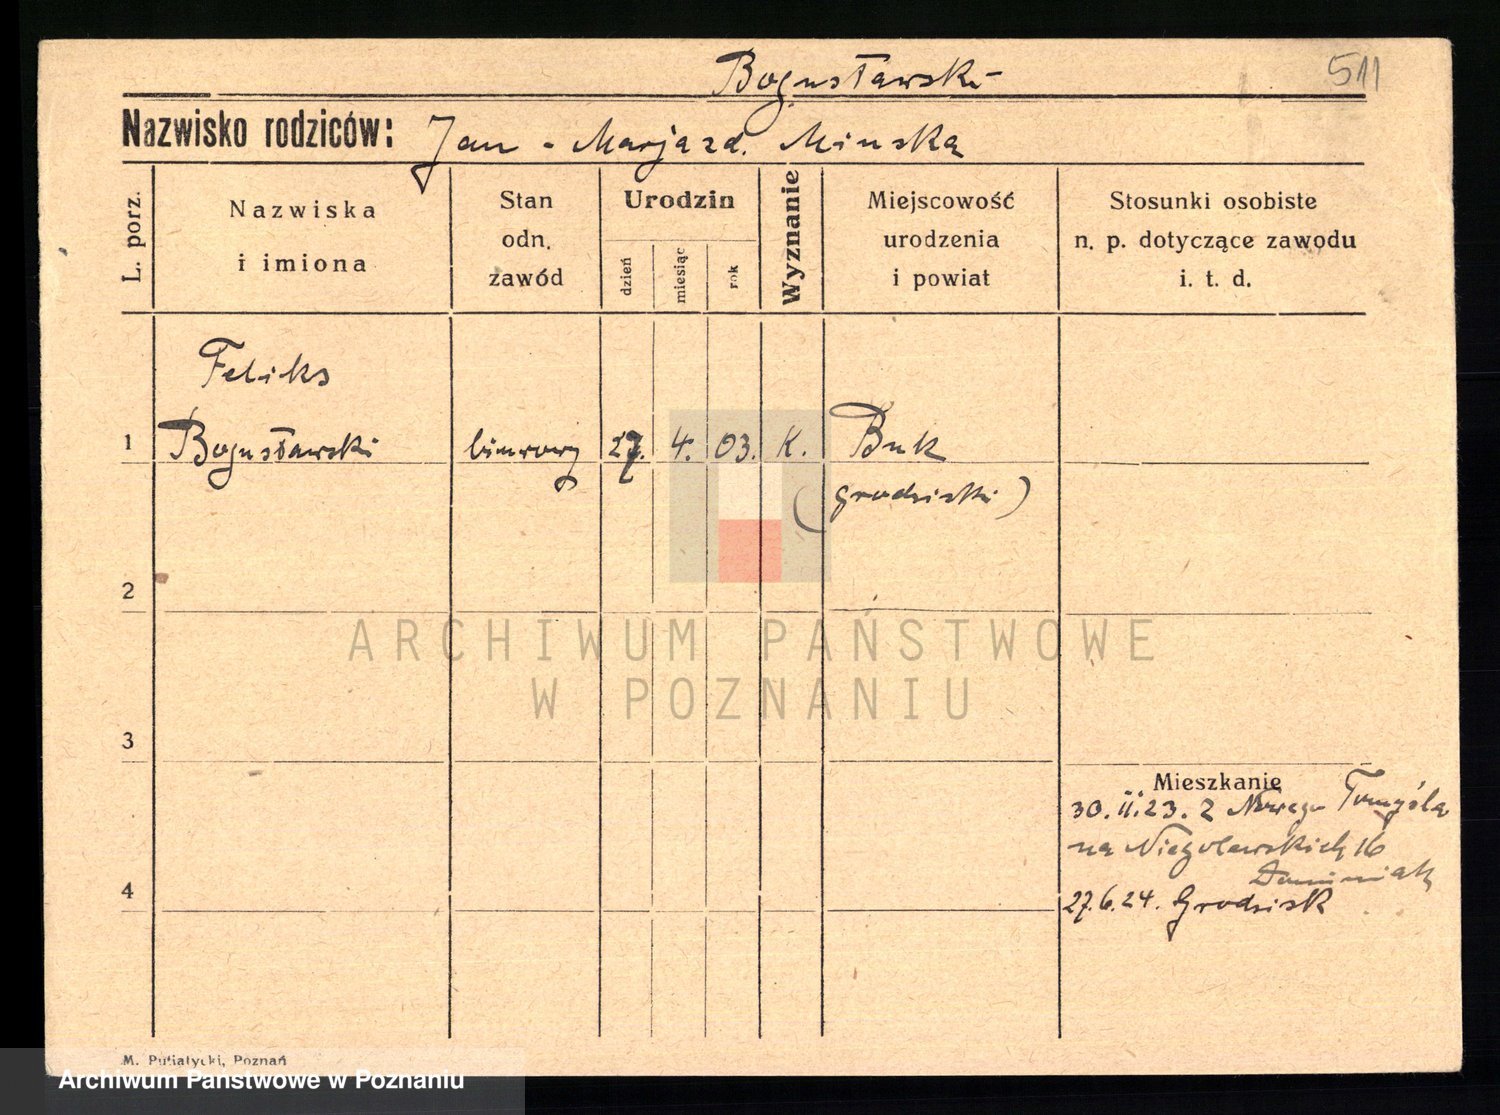 Bogusławski
511
Nazwisko rodziców: Jan - Marja zd. Minska
L. porz.
Nazwiska
i imiona
Stan
odn.
zawód
Urodzin
dzień
miesiąc
rok
Wyznanie
Miejscowość
urodzenia
i powiat
Stosunki osobiste
n. p. dotyczące zawodu
i. t. d.
Feliks
1 Bogusławski biurowy 27. 4. 03. K. Buk
(grodziski)
2
ARCHIWUM PAŃSTWOWE
W POZNANIU
3
Mieszkanie
30.II.23. z Nowego Tomyśla
na Niegolewskich 16
Dominiak
4
27.6.24. Grodzisk
M. Putiatycki, Poznań
Archiwum Państwowe w Poznaniu